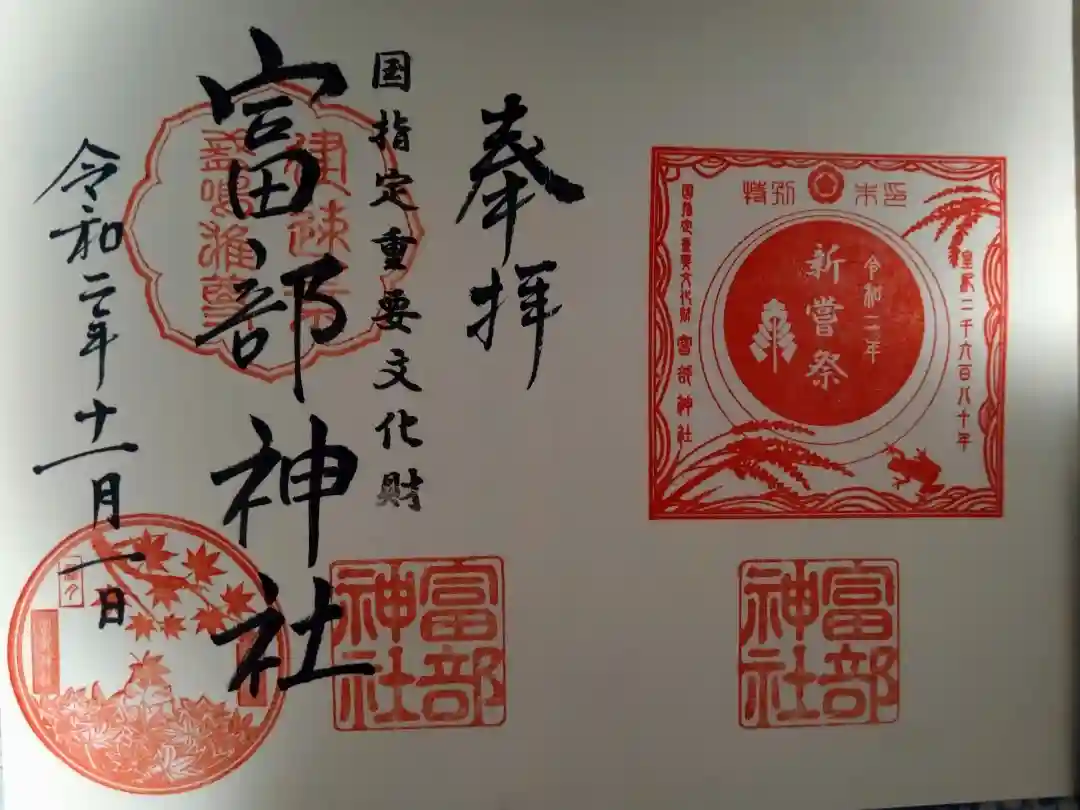 特別朱印
皇紀二千六百八十年
令和二年
新嘗祭
国指定重要文化財 富部神社
富部神社
奉拝
国指定重要文化財
富部神社
令和二年十一月一日
富部神社